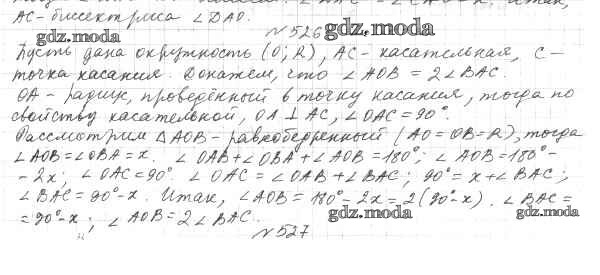 AC - биссектриса ∠DAO.
gdz.moda
№526 gdz.moda
Пусть дана окружность (O; R), AC - касательная, C -
точка касания. Докажем, что ∠AOB = 2∠BAC.
OA - радиус, проведённый в точку касания, тогда по
свойству касательной, OA ⊥ AC, ∠OAC = 90°.
Рассмотрим △AOB - равнобедренный (AO = OB = R), тогда
∠AOB = ∠OBA = x. ∠OAB + ∠OBA + ∠AOB = 180°; ∠AOB = 180° -
- 2x; ∠OAC = 90°. ∠OAC = ∠OAB + ∠BAC; 90° = x + ∠BAC;
∠BAC = 90° - x. Итак, ∠AOB = 180° - 2x = 2(90° - x). ∠BAC =
= 90° - x; ∠AOB = 2∠BAC.
gdz.moda gdz.moda
№527